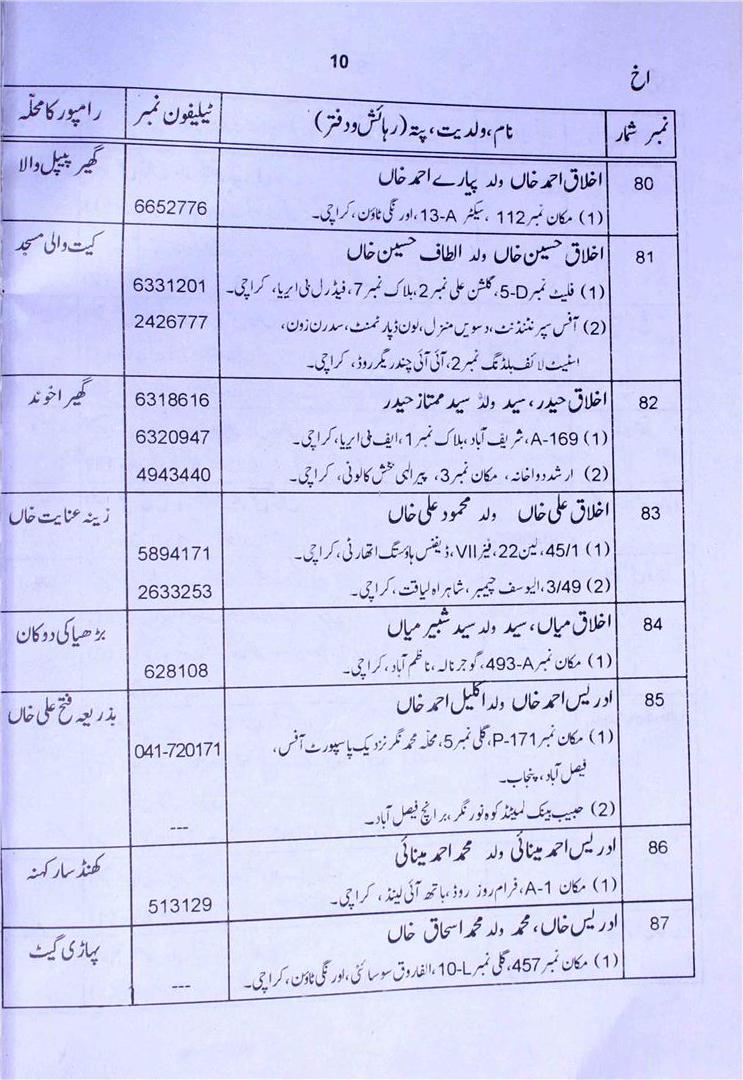 10
اخ
نمبر شمار نام، ولدیت، پتہ (رہائش و دفتر) ٹیلیفون نمبر رامپور کا محلّہ
80 اخلاق احمد خاں ولد پیارے احمد خاں گھیر پیپل والا
(1) مکان نمبر 112 ، سیکٹر 13-A، اورنگی ٹاؤن، کراچی۔ 6652776
81 اخلاق حسین خاں ولد الطاف حسین خاں کیت والی مسجد
(1) فلیٹ نمبر 5-D، گلشن علی نمبر 2، بلاک نمبر 7، فیڈرل بی ایریا، کراچی۔ 6331201
(2) آفس سپرنٹنڈنٹ، دسویں منزل، لون ڈپارٹمنٹ، سدرن زون، 2426777
اسٹیٹ لائف بلڈنگ نمبر 2، آئی آئی چندریگر روڈ، کراچی۔
82 اخلاق حیدر، سید ولد سید ممتاز حیدر 6318616 گھیر اخوند
(1) A-169، شریف آباد، بلاک نمبر 1، ایف بی ایریا، کراچی۔ 6320947
(2) ارشد دواخانہ، مکان نمبر 3، پیر الہی بخش کالونی، کراچی۔ 4943440
83 اخلاق علی خاں ولد محمود علی خاں زینہ عنایت خاں
(1) 45/1، لین 22، فیز VII، ڈیفنس ہاؤسنگ اتھارٹی، کراچی۔ 5894171
(2) 3/49، الیوسف چیمبر، شاہراہ لیاقت، کراچی۔ 2633253
84 اخلاق میاں، سید ولد سید شبیر میاں بڑھیا کی دوکان
(1) مکان نمبر 493-A، گوجر نالہ، ناظم آباد، کراچی۔ 628108
85 ادریس احمد خاں ولد اکلیل احمد خاں بذریعہ فتح علی خاں
(1) مکان نمبر P-171، گلی نمبر 5، محلّہ محمد نگر نزدیک پاسپورٹ آفس، 041-720171
فیصل آباد، پنجاب۔
(2) حبیب بینک لمیٹڈ کوہ نور نگر، برانچ فیصل آباد۔ ---
86 ادریس احمد مینائی ولد محمد احمد مینائی کھنڈسار کہنہ
(1) مکان A-1، فرام روز روڈ، باتھ آئی لینڈ، کراچی۔ 513129
87 ادریس خاں، محمد ولد محمد اسحاق خاں پہاڑی گیٹ
(1) مکان نمبر 457، گلی نمبر 10-L، الفاروق سوسائٹی، اورنگی ٹاؤن، کراچی۔ ---